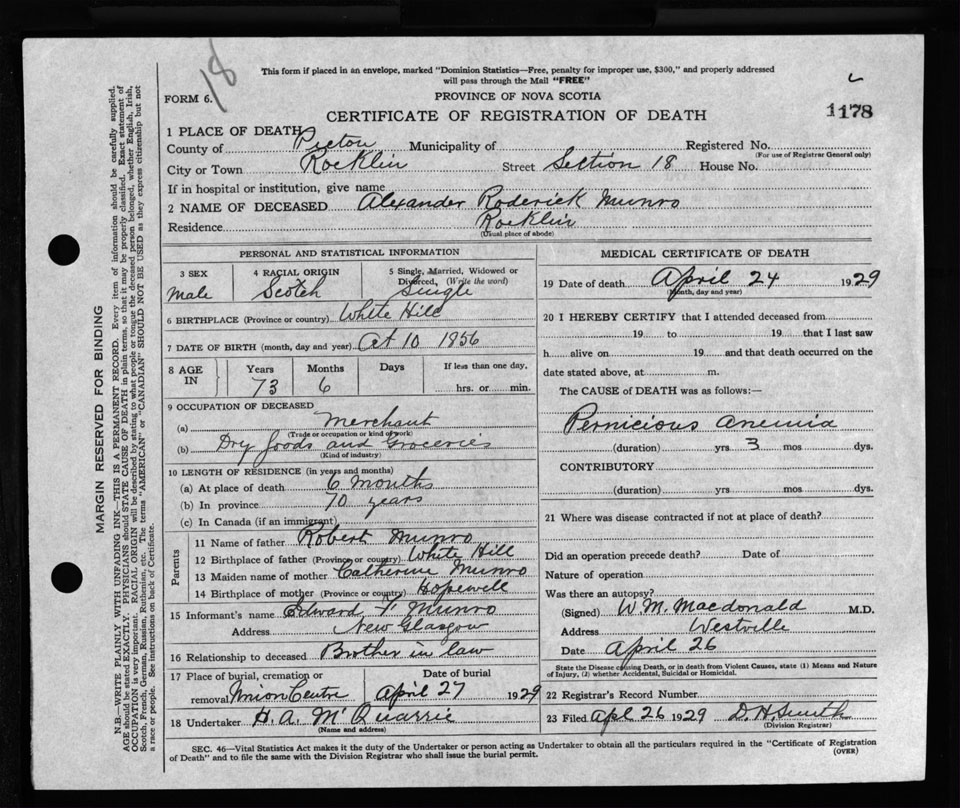 18
This form if placed in an envelope, marked "Dominion Statistics—Free, penalty for improper use, $300," and properly addressed
will pass through the Mail "FREE"
FORM 6.
PROVINCE OF NOVA SCOTIA
CERTIFICATE OF REGISTRATION OF DEATH
1178
1 PLACE OF DEATH
County of Pictou Municipality of Registered No.
(For use of Registrar General only)
City or Town Rocklin Street Section 18 House No.
If in hospital or institution, give name
2 NAME OF DECEASED Alexander Roderick Munro
Residence Rocklin
(Usual place of abode)
PERSONAL AND STATISTICAL INFORMATION
3 SEX 4 RACIAL ORIGIN 5 Single, Married, Widowed or
Divorced, (Write the word)
Male Scotch Single
6 BIRTHPLACE (Province or country) White Hill
7 DATE OF BIRTH (month, day and year) Oct 10 1856
8 AGE IN Years Months Days If less than one day.
73 6 hrs. or min.
9 OCCUPATION OF DECEASED
(a) Merchant
(Trade or occupation or kind of work)
(b) Dry Goods and Groceries
(Kind of industry)
10 LENGTH OF RESIDENCE (in years and months)
(a) At place of death 6 months
(b) In province 70 years
(c) In Canada (if an immigrant)
Parents
11 Name of father Robert Munro
12 Birthplace of father (Province or country) White Hill
13 Maiden name of mother Catherine Munro
14 Birthplace of mother (Province or country) Hopewell
15 Informant's name Edward Munro
Address New Glasgow
16 Relationship to deceased Brother in law
17 Place of burial, cremation or Date of burial
removal Union Centre April 27 1929
18 Undertaker H. A. McQuarrie
(Name and address)
MEDICAL CERTIFICATE OF DEATH
19 Date of death April 24 1929
(Month, day and year)
20 I HEREBY CERTIFY that I attended deceased from
19 to 19 that I last saw
h alive on 19 and that death occurred on the
date stated above, at m.
The CAUSE of DEATH was as follows:—
Pernicious Anemia
(duration) yrs 3 mos dys.
CONTRIBUTORY
(duration) yrs mos dys.
21 Where was disease contracted if not at place of death?
Did an operation precede death? Date of
Nature of operation
Was there an autopsy?
(Signed) W. M. Macdonald M.D.
Address Westville
Date April 26
State the Disease causing Death, or in death from Violent Causes, state (1) Means and Nature
of Injury, (2) whether Accidental, Suicidal or Homicidal.
22 Registrar's Record Number
23 Filed Apl 26 1929 D. H. Smith
(Division Registrar)
SEC. 46—Vital Statistics Act makes it the duty of the Undertaker or person acting as Undertaker to obtain all the particulars required in the "Certificate of Registration
of Death" and to file the same with the Division Registrar who shall issue the burial permit.
(OVER)
MARGIN RESERVED FOR BINDING
N.B.—WRITE PLAINLY WITH UNFADING INK—THIS IS A PERMANENT RECORD. Every item of information should be carefully supplied.
AGE should be stated EXACTLY. PHYSICIANS should STATE CAUSE OF DEATH in plain terms, so that it may be properly classified. Exact statement of
OCCUPATION is very important. RACIAL ORIGIN will be described by stating to what people or tongue the deceased person belonged, whether English, Irish,
Scotch, French, German, Russian, Ruthenian, etc. The terms "AMERICAN" or "CANADIAN" SHOULD NOT BE USED as they express citizenship but not
a race or people. See instructions on back of Certificate.